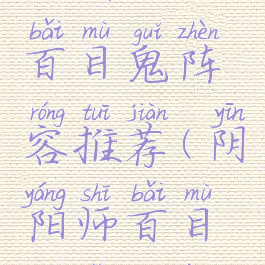 bǎi mù guǐ zhèn
百目鬼阵
róng tuī jiàn yīn
容推荐(阴
yáng shī bǎi mù
阳师百目